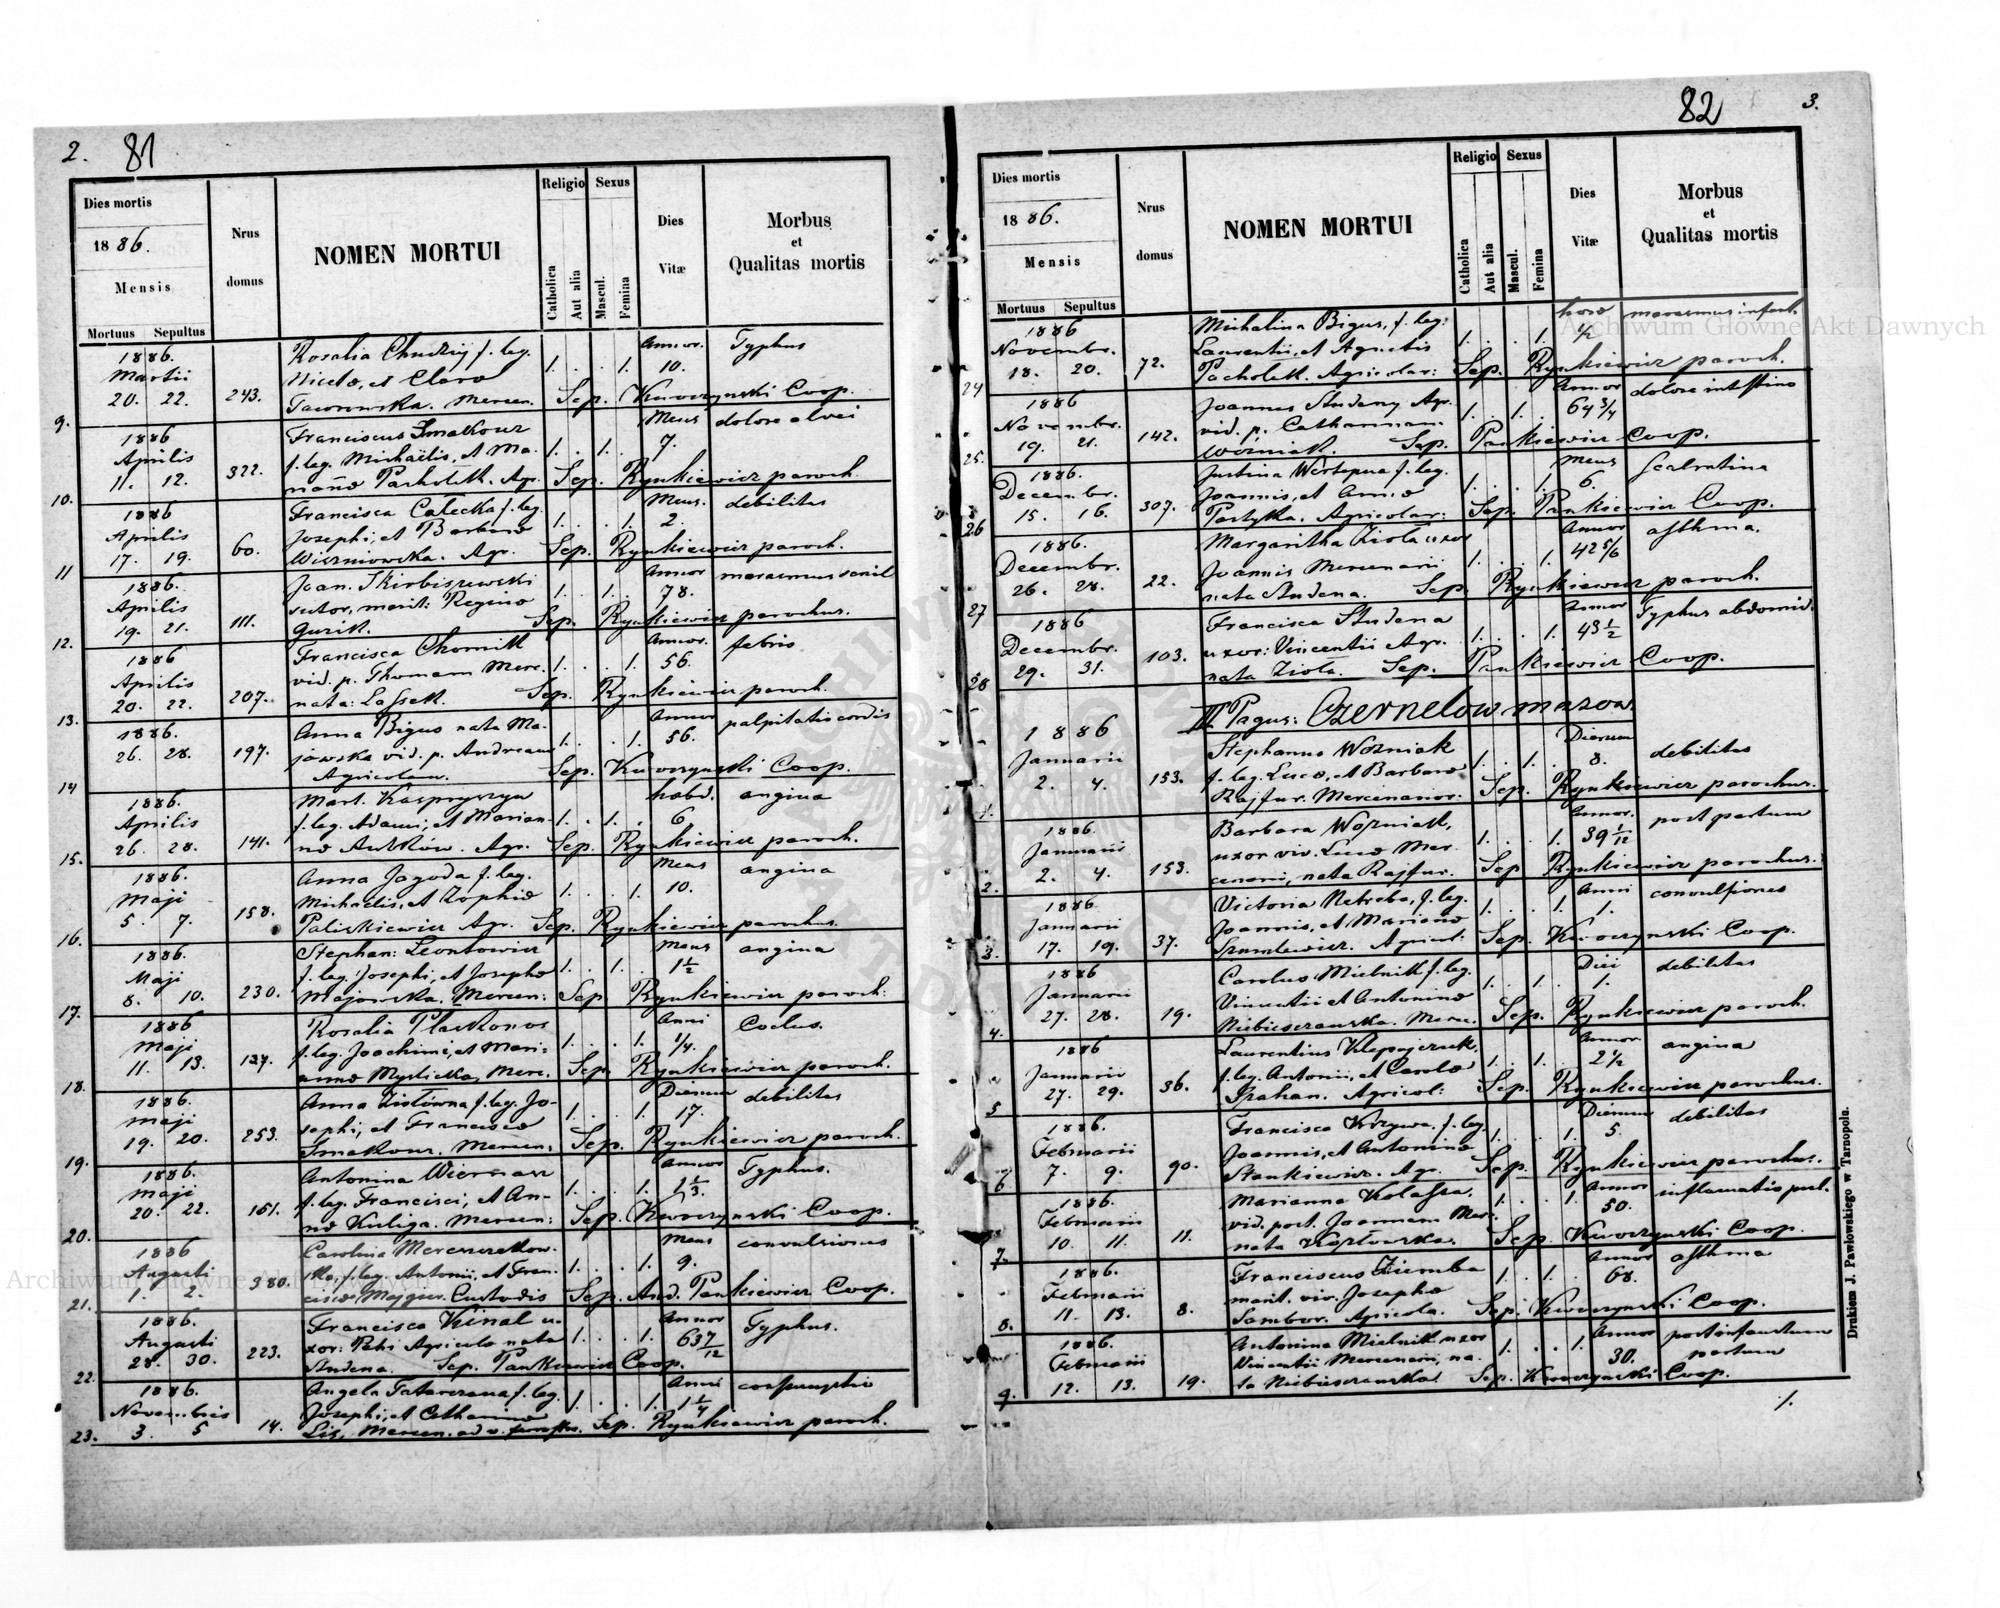 2. 81
Dies mortis
1886.
Mensis
Mortuus Sepultus
Nrus
domus
NOMEN MORTUI
Religio
Catholica
Aut alia
Sexus
Mascul.
Femina
Dies
Vitæ
Morbus
et
Qualitas mortis
1886. Rosalia Chudzij f. leg. Annor. Typhus
Martii et Clara 1. . . 1. 10.
9. 20. 22. 243. Mercen. Sep. Coop.
1886 Franciscus Smakouz Mens dolore alvei
Aprilis f. leg. Michaëlis, et Ma- 1. . 1. 7.
10. 11. 12. 322. Pacholek. Agr. Sep. Rynkiewicz paroch.
1886 Francisca Całecka f. leg. Mens. debilitas
Aprilis Josephi, et Barbara 1. . . 1. 2.
11 17. 19. 60. Wiszniowska. Agr. Sep. Rynkiewicz paroch.
1886. Joan. Skirbiszewski Annor marasmus senil
Aprilis sutor, marit: Regina 1. . 1. 78.
12. 19. 21. 111. Guzik. Sep. Rynkiewicz parochus.
1886 Francisca Chomik Annor. febris
Aprilis vid. p. Thomam Merc. 1. . . 1. 56.
13. 20. 22. 207. nata: Lassek. Sep. Rynkiewicz paroch.
1886. Anna Bigus nata Ma- Annor palpitatis cordis
26. 28. 197. jowska vid. p. Andream 1. . . 1. 56.
14 Agricolam. Sep. Coop.
1886. Mart. Kasprzyszyn angina
Aprilis f. leg. Adami, et Marian- 1. . 1. 6
15. 26. 28. 141. Antków. Agr. Sep. Rynkiewicz paroch.
1886. Anna Jagoda f. leg. Mens angina
Maji Michaelis, et Zophia 1. . . 1. 10.
16. 5. 7. 158. Paliszkiewicz Agr. Sep. Rynkiewicz parochus.
1886. Stephan: Leontowicz Mens angina
Maji f. leg. Josephi, et Josepha 1. . 1. 1½
17. 8. 10. 230. Majowska. Mercen: Sep. Rynkiewicz paroch:
1886 Rosalia Anni
Maji f. leg. Joachimi, et Mari- 1. . . 1. ¼.
18. 11. 13. 127. Merc. Sep. Rynkiewicz paroch.
1886. Anna Ziołówna f. leg. Jo- Dierum debilitas
Maji sephi, et Francisca 1. . . 1. 17.
19. 19. 20. 253. Smakouz. Mercen: Sep. Rynkiewicz paroch.
1886. Antonina Annor Typhus.
Maji f. leg. Francisci, et An- 1. . . 1. 1⅓.
20. 20. 22. 161. Kuliga. Mercen: Sep. Coop.
1886 Carolina Mens convulsiones
Augusti f. leg. Antonii, et Fran- 1. . . 1. 9.
21. 1. 2. 380. Custodis Sep. And. Pankiewicz Coop.
1886. Francisca Kinal u- Annor Typhus.
Augusti xor: Petri Agricola nata 1. . . 1. 63 7/12
22. 28. 30. 223. Studena. Sep. Pankiewicz Coop.
1886. Angela f. leg. Anni
Novembris Josephi, et Catharina 1. . . 1. 1¼
23. 3. 5 14. Lis, Mercen. Sep. Rynkiewicz paroch.
82 3.
Dies mortis
1886.
Mensis
Mortuus Sepultus
Nrus
domus
NOMEN MORTUI
Religio
Catholica
Aut alia
Sexus
Mascul.
Femina
Dies
Vitæ
Morbus
et
Qualitas mortis
1886 Michalina Bigus, f. leg: hora marasmus infant.
Novembr. Laurentii, et Agnetis 1. . . 1. ½
24 18. 20. 72. Pacholek. Agricolar: Sep. Rynkiewicz paroch.
1886 Joannes Studeny Agr. Annor dolore intestino
Novembr. vid. p. Catharinam 1. . 1. . 64¾
25. 19. 21. 142. Wozniak. Sep. Pankiewicz Coop.
1886. Justina f. leg. Mens Scalratina
Decembr. Joannis, et Anna 1. . . 1. 6.
26 15. 16. 307. Partyka. Agricolar: Sep. Pankiewicz Coop.
1886. Margaritha Zioła uxor Annor asthma.
Decembr. Joannis Mercenarii 1. . . 1. 42 5/6
27 26. 28. 22. nata Studena. Sep. Rynkiewicz paroch.
1886 Francisca Studena Annor Typhus abdomid.
Decembr. uxor: Vincentii Agr. 1. . . 1. 43½
28 29. 31. 103. nata Zioła. Sep. Pankiewicz Coop.
III Pagus: Czernelow mazow.
1886 Stephanus Wozniak Dierum
Januarii f. leg. Luca, et Barbara 1. . 1. 8. debilitas
1. 2. 4. 153. Rajfur. Mercenarior: Sep. Rynkiewicz parochus.
1886. Barbara Wozniak, Annor. post partum
Januarii uxor viv. Luca Mer- 1. . . 1. 39 1/12
2. 2. 4. 153. cenarii, nata Rajfur. Sep Rynkiewicz parochus.
1886 Victoria Netreba, f. leg. Anni convulsiones
Januarii Joannis, et Mariana 1. . . 1. 1.
3. 17. 19. 37. Agricol: Sep. Coop.
1886 Carolus Mielnik f. leg. Diei debilitas
Januarii Vincentii et Antonina 1. . 1. . 1.
4. 27. 28. 19. Niebieszczanska. Merc. Sep. Rynkiewicz paroch.
1886 Laurentius Annor angina
Januarii f. leg. Antonii, et Carola 1. . 1. . 2½
5 27. 29. 36. Agricol: Sep. Rynkiewicz parochus.
1886. Francisca Krzywa, f. leg. Dierum debilitas
Februarii Joannis, et Antonina 1. . . 1. 5.
6 7. 9. 90. Stankiewicz. Agr. Sep. Rynkiewicz parochus.
1886. Marianna Kolassa, Annor inflamatis pul.
Februarii vid. post. Joannem Mer. 1. . . 1. 50.
7. 10. 11. 11. nata Kozłowska. Sep. Coop.
1886. Franciscus Ziemba Annor asthma
Februarii marit. viv. Josepha 1. . 1. . 68.
8. 11. 13. 8. Sambor. Agricola. Sep. Coop.
1886. Antonina Mielnik uxor Annor post infaustum
Februarii Vincentii Mercenarii, na- 1. . . 1. 30. partum
9. 12. 13. 19. ta Niebieszczanska. Sep. Coop.
Drukiem J. Pawłowskiego w Tarnopolu.
Archiwum Główne Akt Dawnych
Archiwum Główne Akt Dawnych